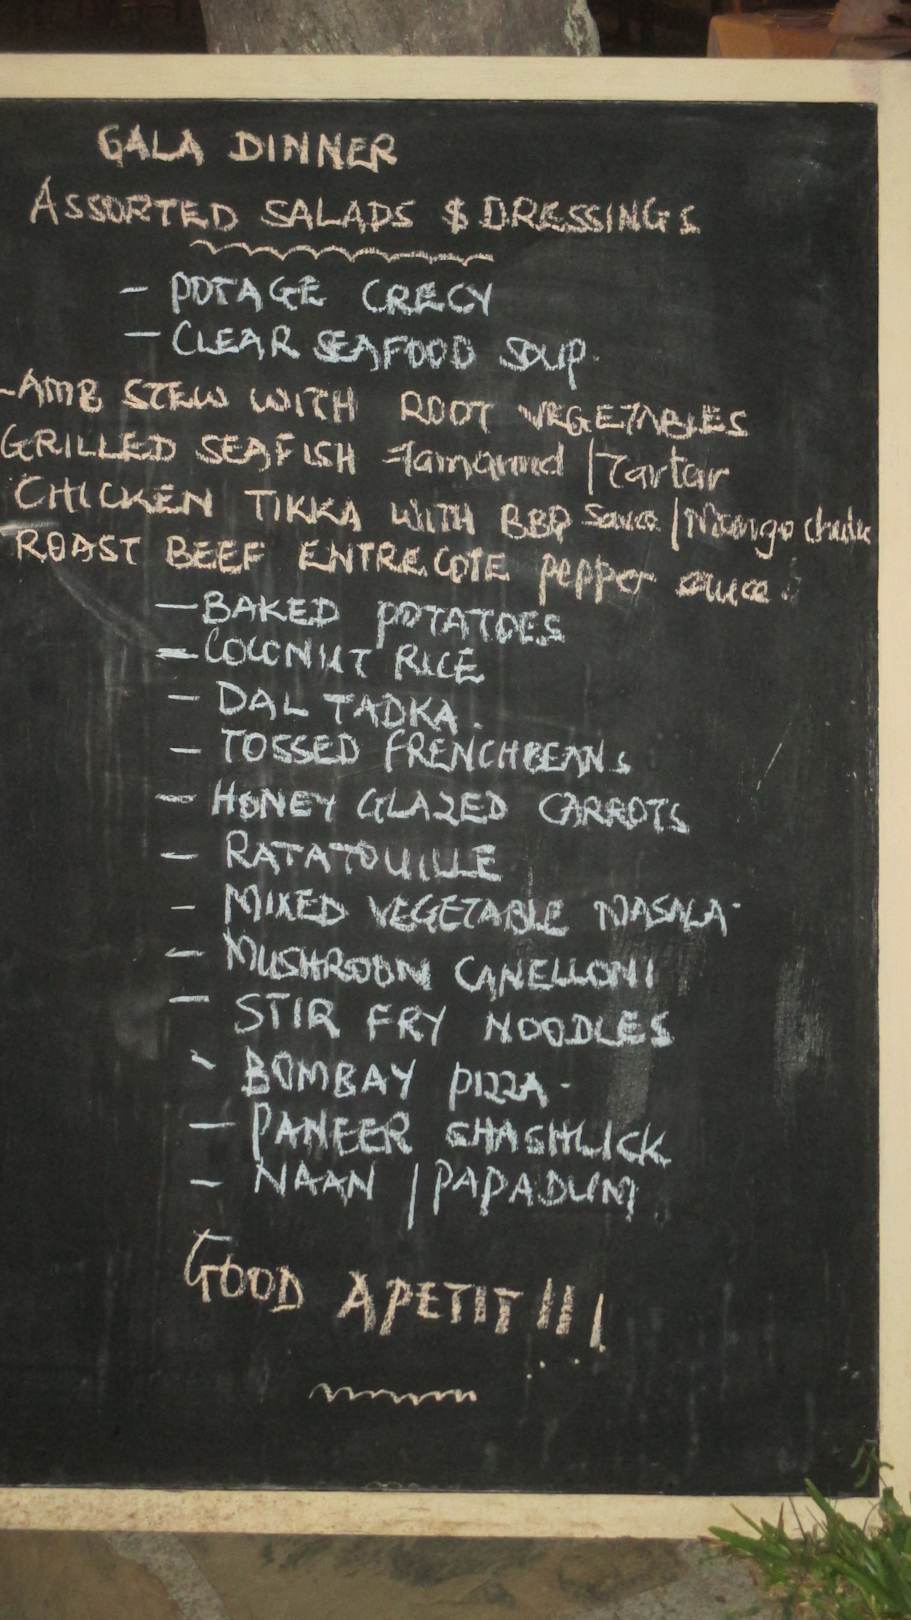 GALA DINNER
ASSORTED SALADS $ DRESSINGS
- POTAGE CRECY
- CLEAR SEAFOOD SOUP.
LAMB STEW WITH ROOT VEGETABLES
GRILLED SEAFISH Tamarind / Tartar
CHICKEN TIKKA WITH BBQ Sauce / Mango
ROAST BEEF ENTRECOTE pepper sauce
- BAKED POTATOES
- COCONUT RICE
- DAL TADKA.
- TOSSED FRENCHBEANS
- HONEY GLAZED CARROTS
- RATATOUILLE
- MIXED VEGETABLE MASALA
- MUSHROOM CANELLONI
- STIR FRY NOODLES
- BOMBAY PIZZA
- PANEER SHASHLICK
- NAAN / PAPADUM
GOOD APETIT!!!